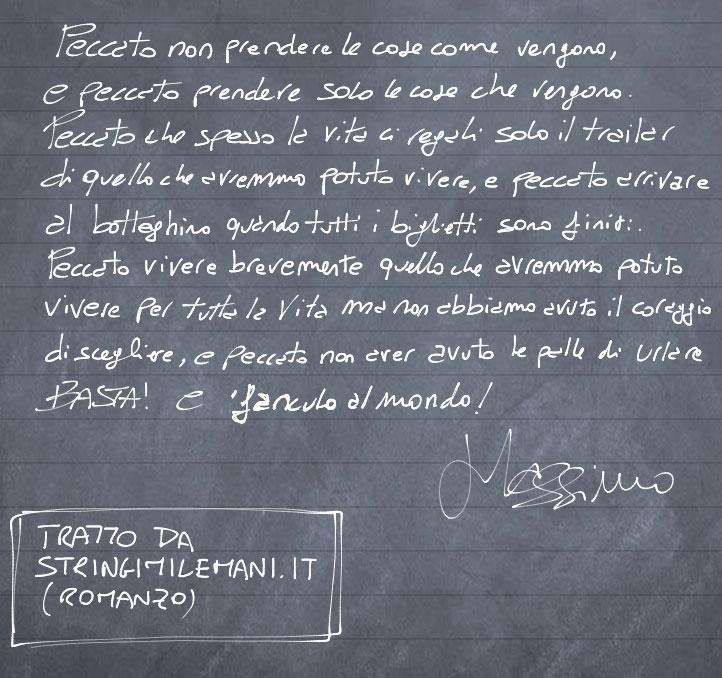 Peccato non prendere le cose come vengono,
e peccato prendere solo le cose che vengono.
Peccato che spesso la vita ci regali solo il trailer
di quello che avremmo potuto vivere, e peccato arrivare
al botteghino quando tutti i biglietti sono finiti.
Peccato vivere brevemente quello che avremmo potuto
vivere per tutta la vita ma non abbiamo avuto il coraggio
di scegliere, e peccato non aver avuto le palle di urlare
BASTA! e 'fanculo al mondo!
Massimo
TRATTO DA
STRINGIMILEMANI.IT
(ROMANZO)